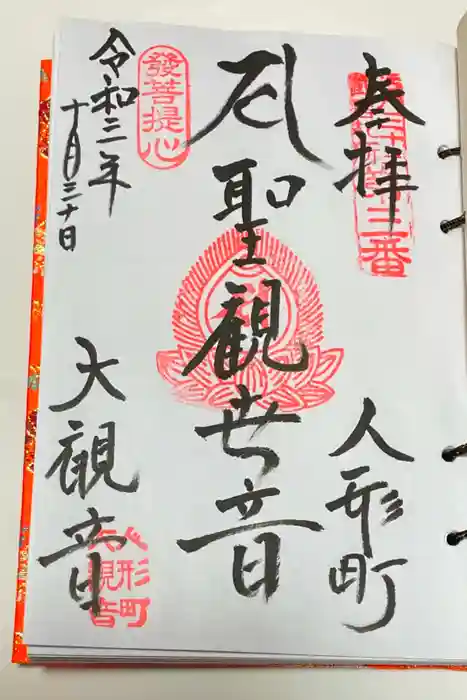 奉拝
三番
人形町
聖観世音
發菩提心
令和三年
十月三十日
大観音
人形町
大観音